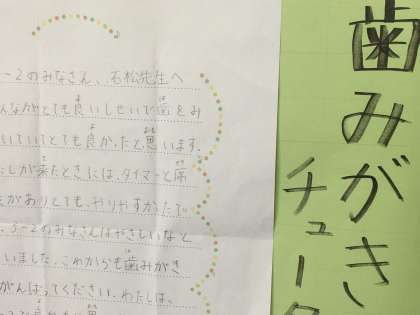 歯みがき
チュータ
5-2のみなさん、石松先生へ
んながとても良いしせいで歯をみ
いていてとても良かったと思います。
たしが来たときには、タイマーと席
がありとても、やりやすかたで
、5-2のみなさんはやさしいなと
いました。これからも歯みがき
がんばってください。わたしは、